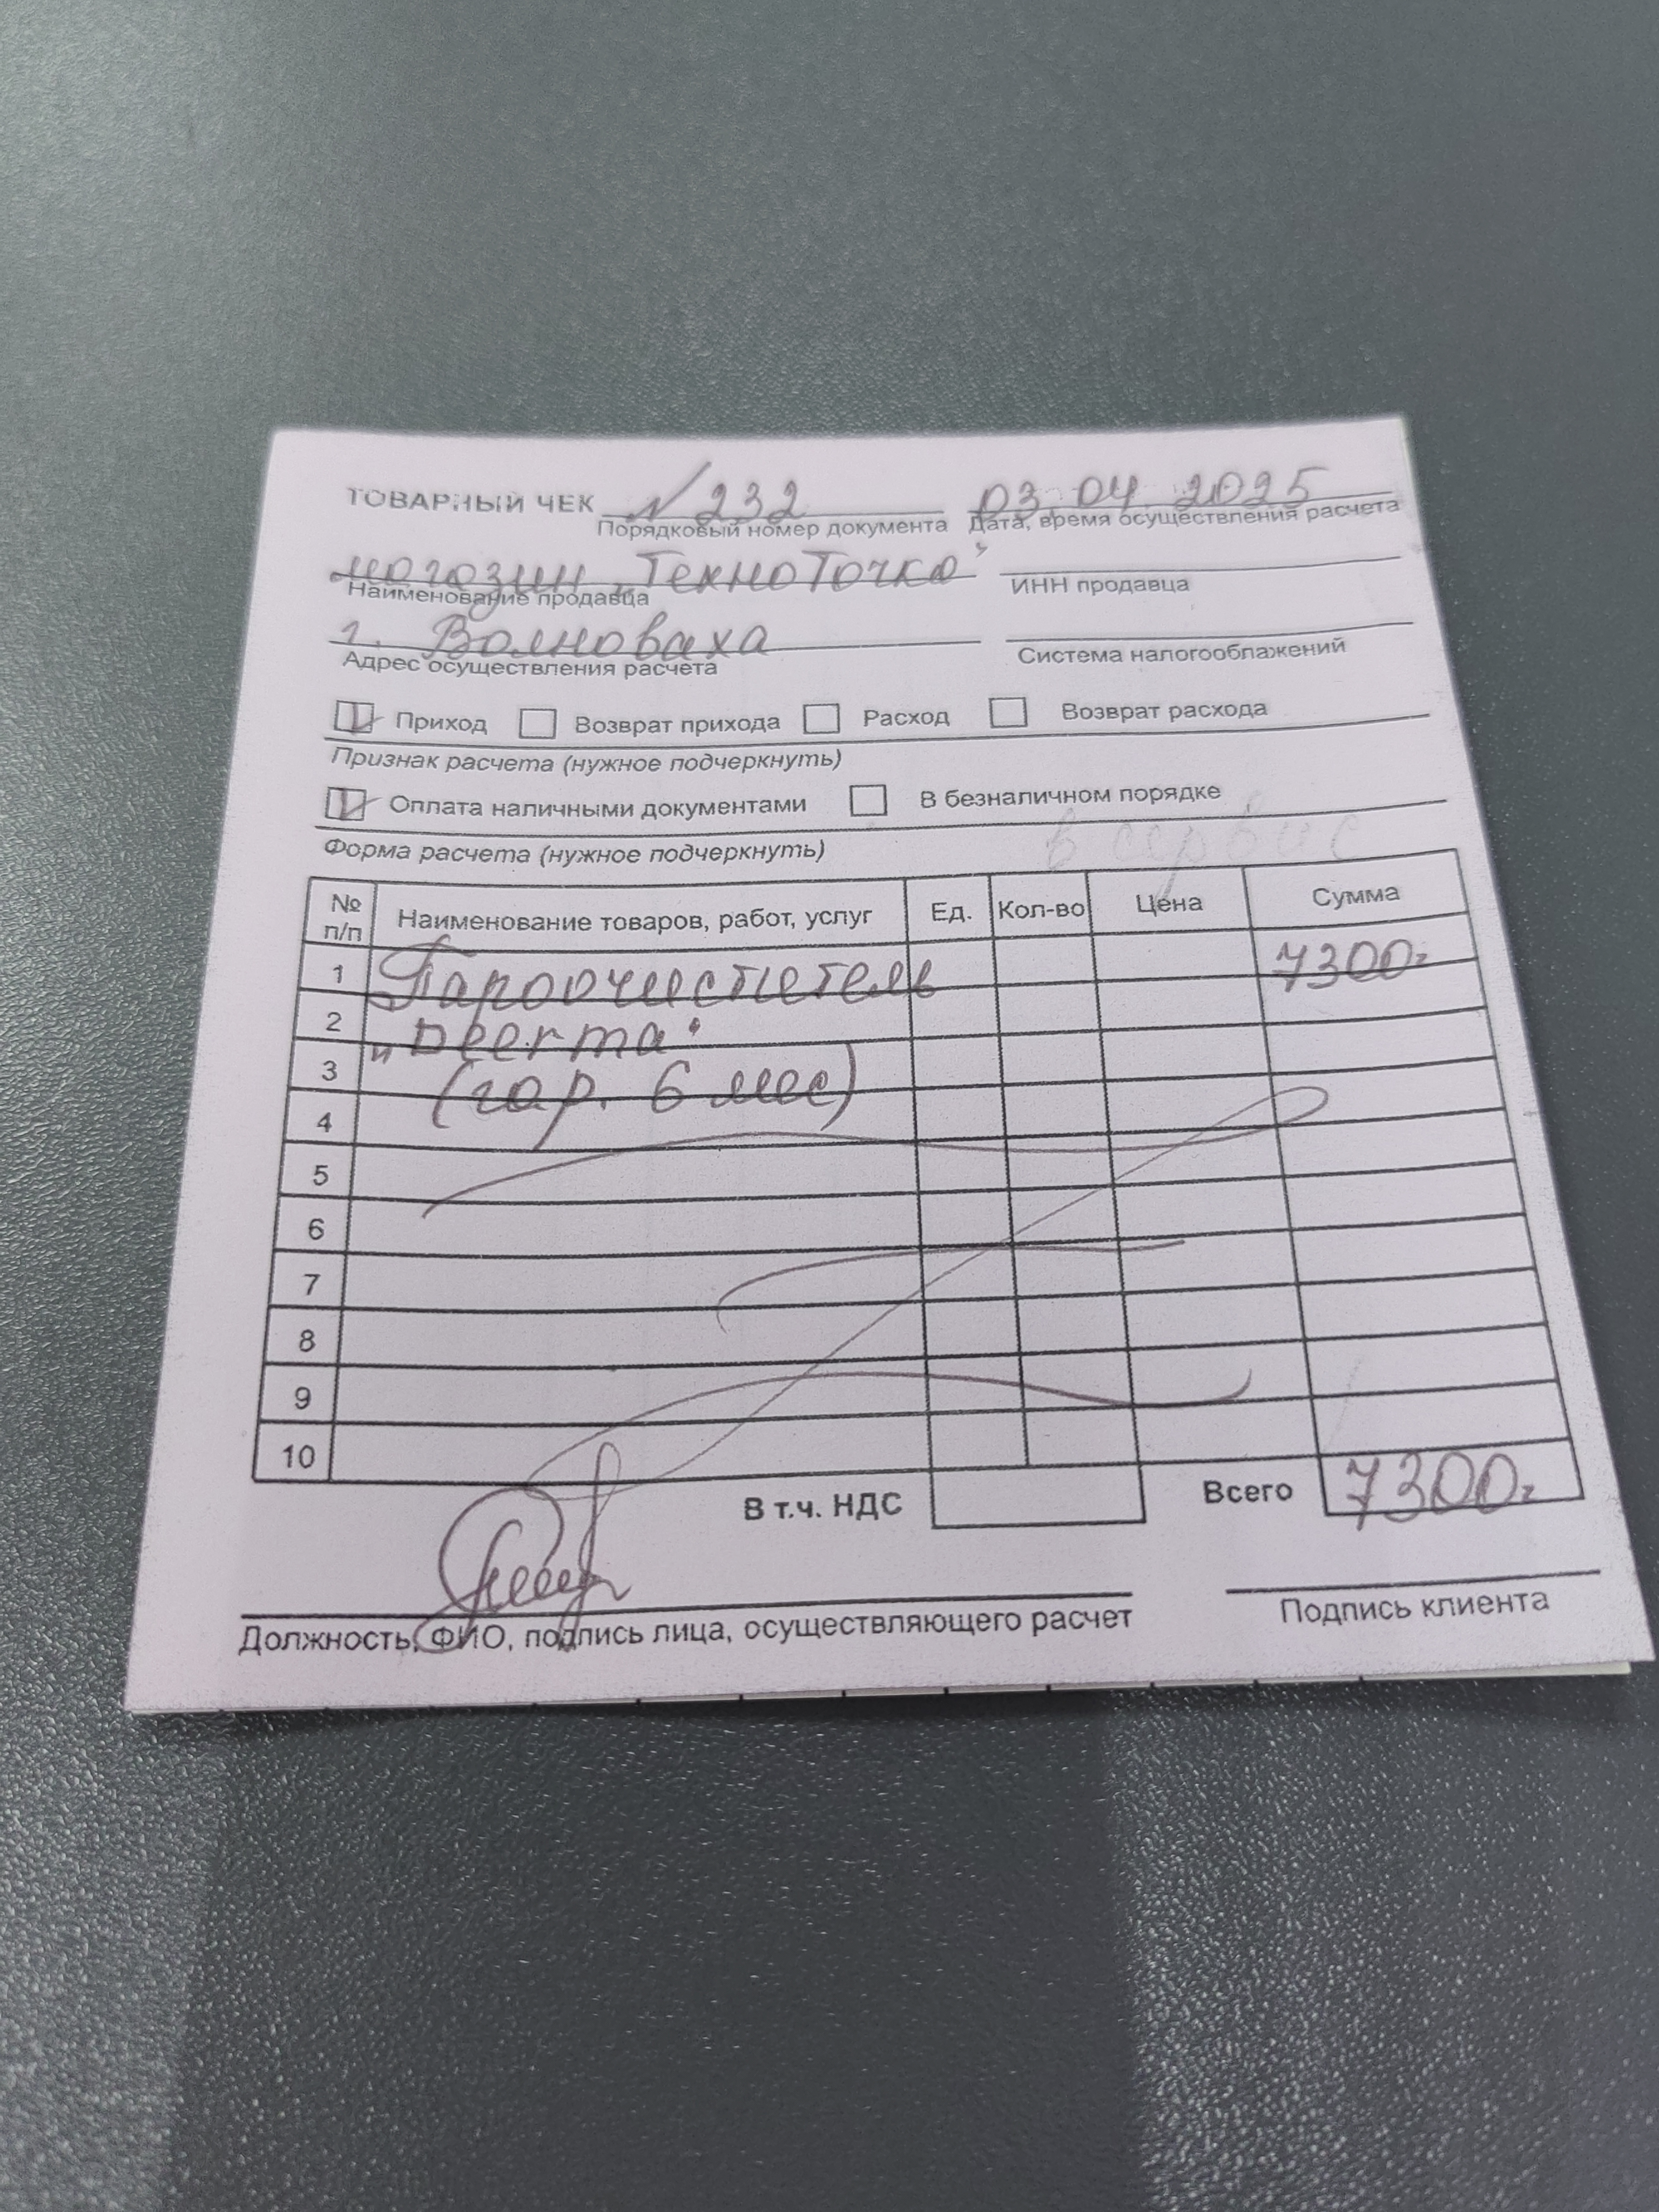 ТОВАРНЫЙ ЧЕК № 232 03 04 2025
Порядковый номер документа Дата, время осуществления расчета
магазин „ТехноТочка"
Наименование продавца ИНН продавца
г. Волноваха
Адрес осуществления расчета Система налогооблажений
Приход Возврат прихода Расход Возврат расхода
Признак расчета (нужное подчеркнуть)
Оплата наличными документами В безналичном порядке
Форма расчета (нужное подчеркнуть) в сервис
№ п/п Наименование товаров, работ, услуг Ед. Кол-во Цена Сумма
1 Пароочиститель 7300=
2 „Deerma"
3 (гар. 6 мес)
4
5
6
7
8
9
10
В т.ч. НДС Всего 7300=
Должность, ФИО, подпись лица, осуществляющего расчет Подпись клиента